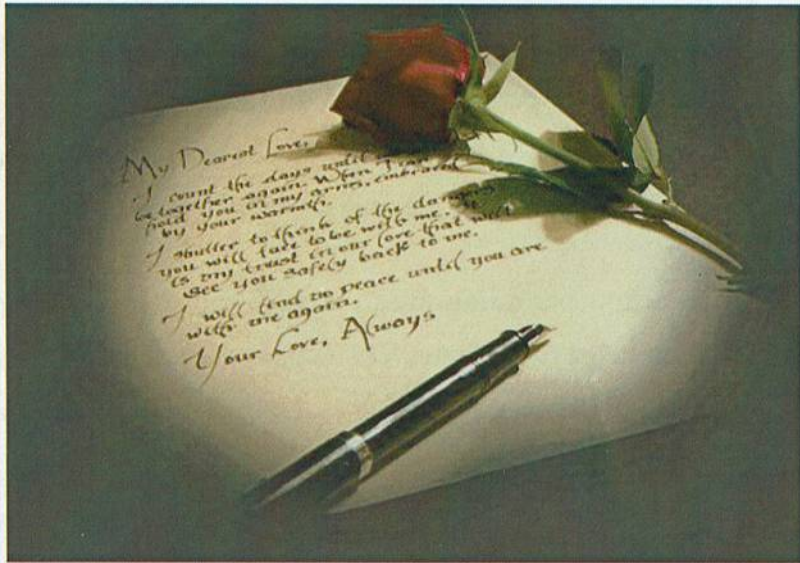 My Dearest Love,
I count the days until
be together again. When I can
hold you in my arms, embraced
by your warmth.
I shutter to think of the dangers
you will face to be with me.
is my trust in our love that will
see you safely back to me.
I will find no peace until you are
with me again.
Your Love, Always